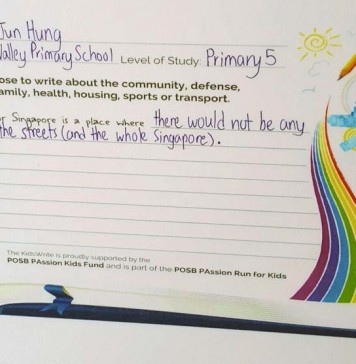 Jun Hung
Valley Primary School Level of Study: Primary 5
ose to write about the community, defense,
amily, health, housing, sports or transport.
r Singapore is a place where there would not be any
the streets (and the whole Singapore).
The KidsWrite is proudly supported by the
POSB PAssion Kids Fund and is part of the POSB PAssion Run for Kids